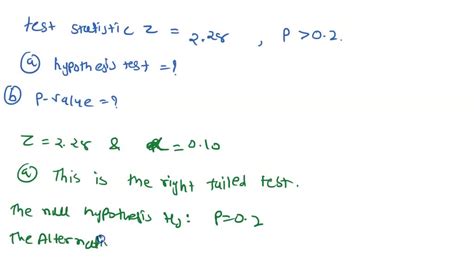 test statistic Z = 2.28 , P > 0.2.
ⓐ hypothesis test = ?
ⓑ P-value = ?
Z = 2.28 & α = 0.10
ⓐ This is the right tailed test.
The null hypothesis H₀: P = 0.2
The Alternat